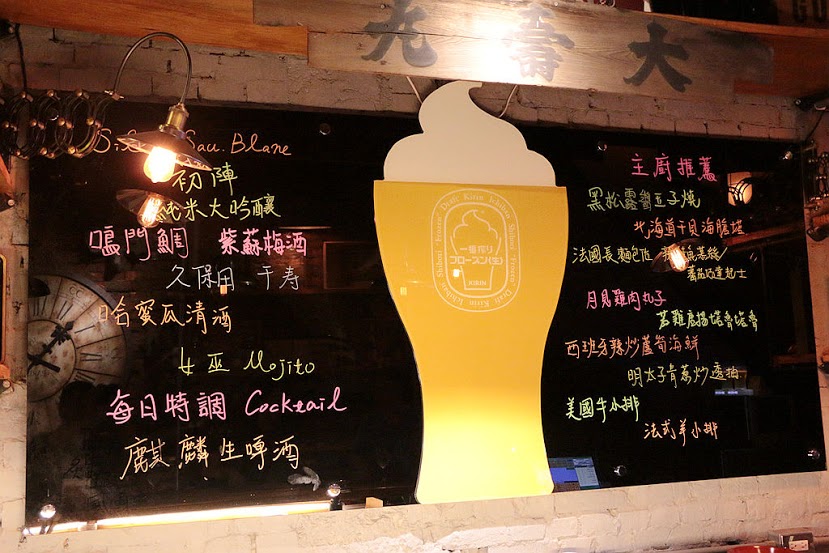 大壽九
Sau. Blanc
初陣
純米大吟釀
鳴門鯛 紫蘇梅酒
久保田 千寿
哈蜜瓜清酒
女巫 Mojito
每日特調 Cocktail
麒麟生啤酒
一番搾り
フローズン〈生〉
KIRIN
主廚推薦
黑松露雞玉子燒
北海道干貝海膽
法國長麵包佐
蕃茄巧達起士
月見雞肉丸子
唐揚塔魯塔魯
西班牙辣炒蘆筍海鮮
明太子
美國牛小排
法式羊小排